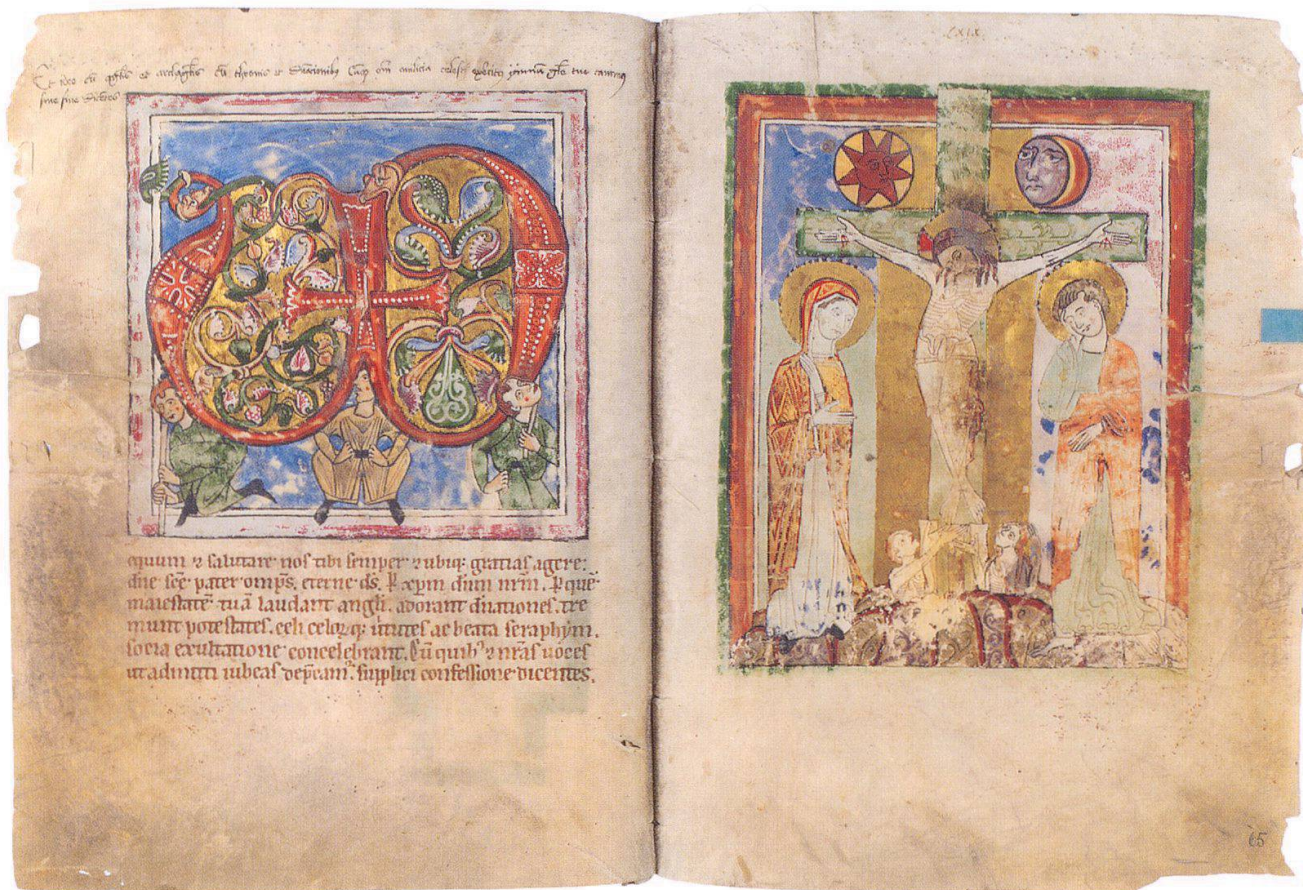 Et ideo cū āglis et archāglis cū thronis et dn̄acionibꝫ Cūq̨ om̄ milicia celestꝭ exercitꝰ ymnū gl̄e tue canimꝰ
sine fine dicētes
equum ⁊ salutare nos tibi semper ⁊ ubiqꝫ gratias agere:
dn̄e sc̄e pater omp̄s, eterne ds̄. P̲ xp̄m dn̄m nr̄m. P̲ quē
maiestatē tuā laudant angl̄i. adorant dn̄ationes. tre
munt potestates. celi celoꝝqꝫ uirtutes ac beata seraphym.
socia exultatione concelebrant. Cū quibꝰ ⁊ nr̄as uoces
ut admitti iubeas dep̄camꝰ. supplici confessione dicentes.
LXIX
65